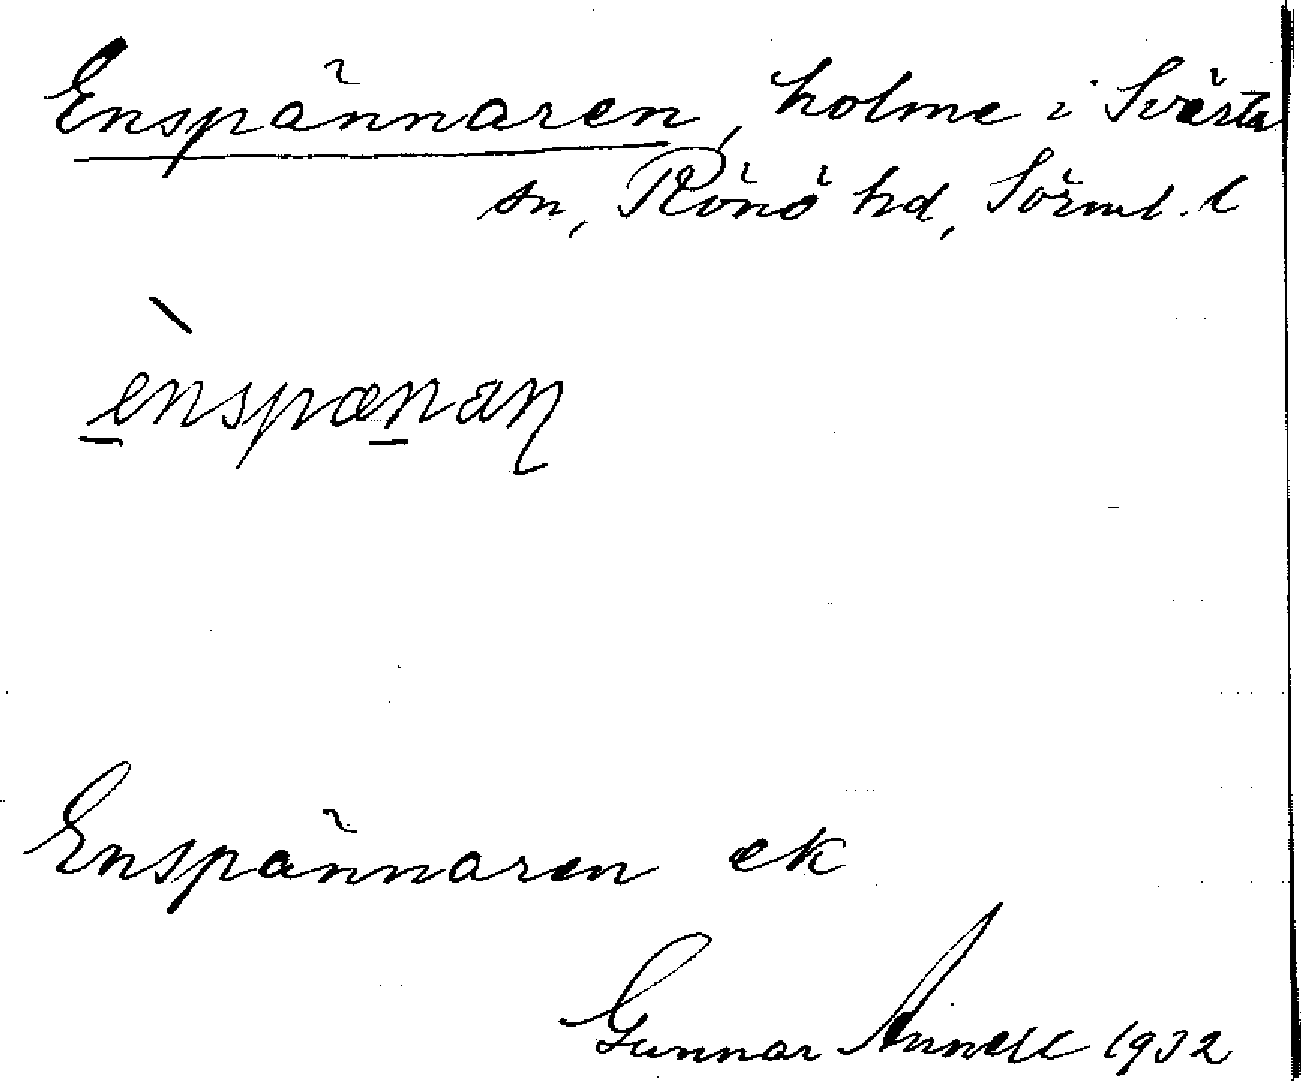 Enspännaren, holme i Svärta
sn, Rönö hd, Sörml. l
ènspænan
Enspännaren ek
Gunnar Annell 1932